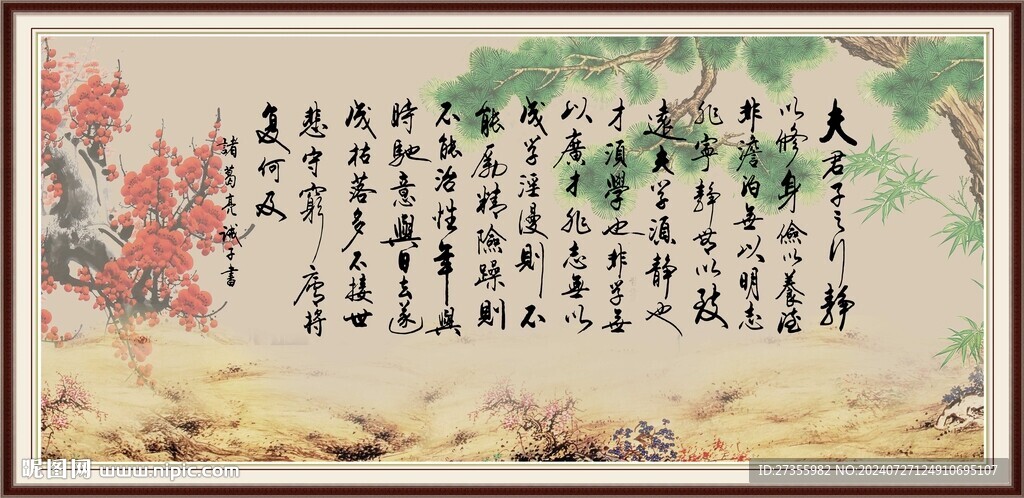 夫君子之行靜
以修身儉以養德
非澹泊無以明志
非寧靜無以致
遠夫学須靜也
才須學也非学無
以廣才非志無以
成学淫漫則不
能勵精險躁則
不能治性年與
時馳意與日去遂
成枯落多不接世
悲守窮廬將
復何及
諸葛亮誡子書
昵图网 www.nipic.com
ID:27355982 NO:20240727124910695107